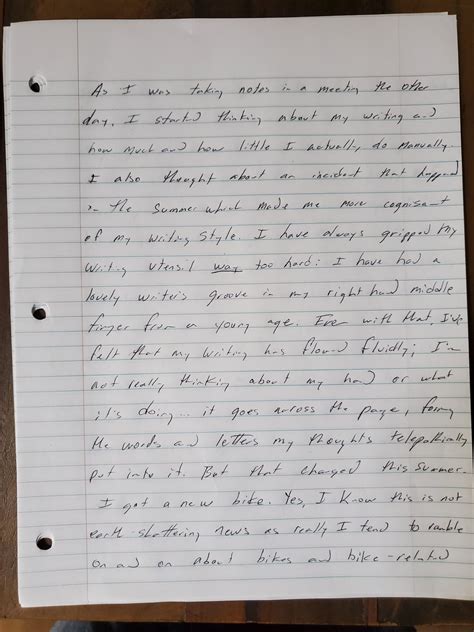 As I was taking notes in a meeting the other
day, I started thinking about my writing and
how much and how little I actually do manually.
I also thought about an incident that happened
in the Summer which made me more cognisant
of my writing style. I have always gripped my
writing utensil way too hard: I have had a
lovely writer's groove in my right hand middle
finger from a young age. Even with that, I've
felt that my writing has flowed fluidly; I'm
not really thinking about my hand or what
it's doing... it goes across the page, forming
the words and letters my thoughts telepathically
put into it. But that changed this Summer.
I got a new bike. Yes, I know this is not
earth-shattering news as really I tend to ramble
on and on about bikes and bike-related